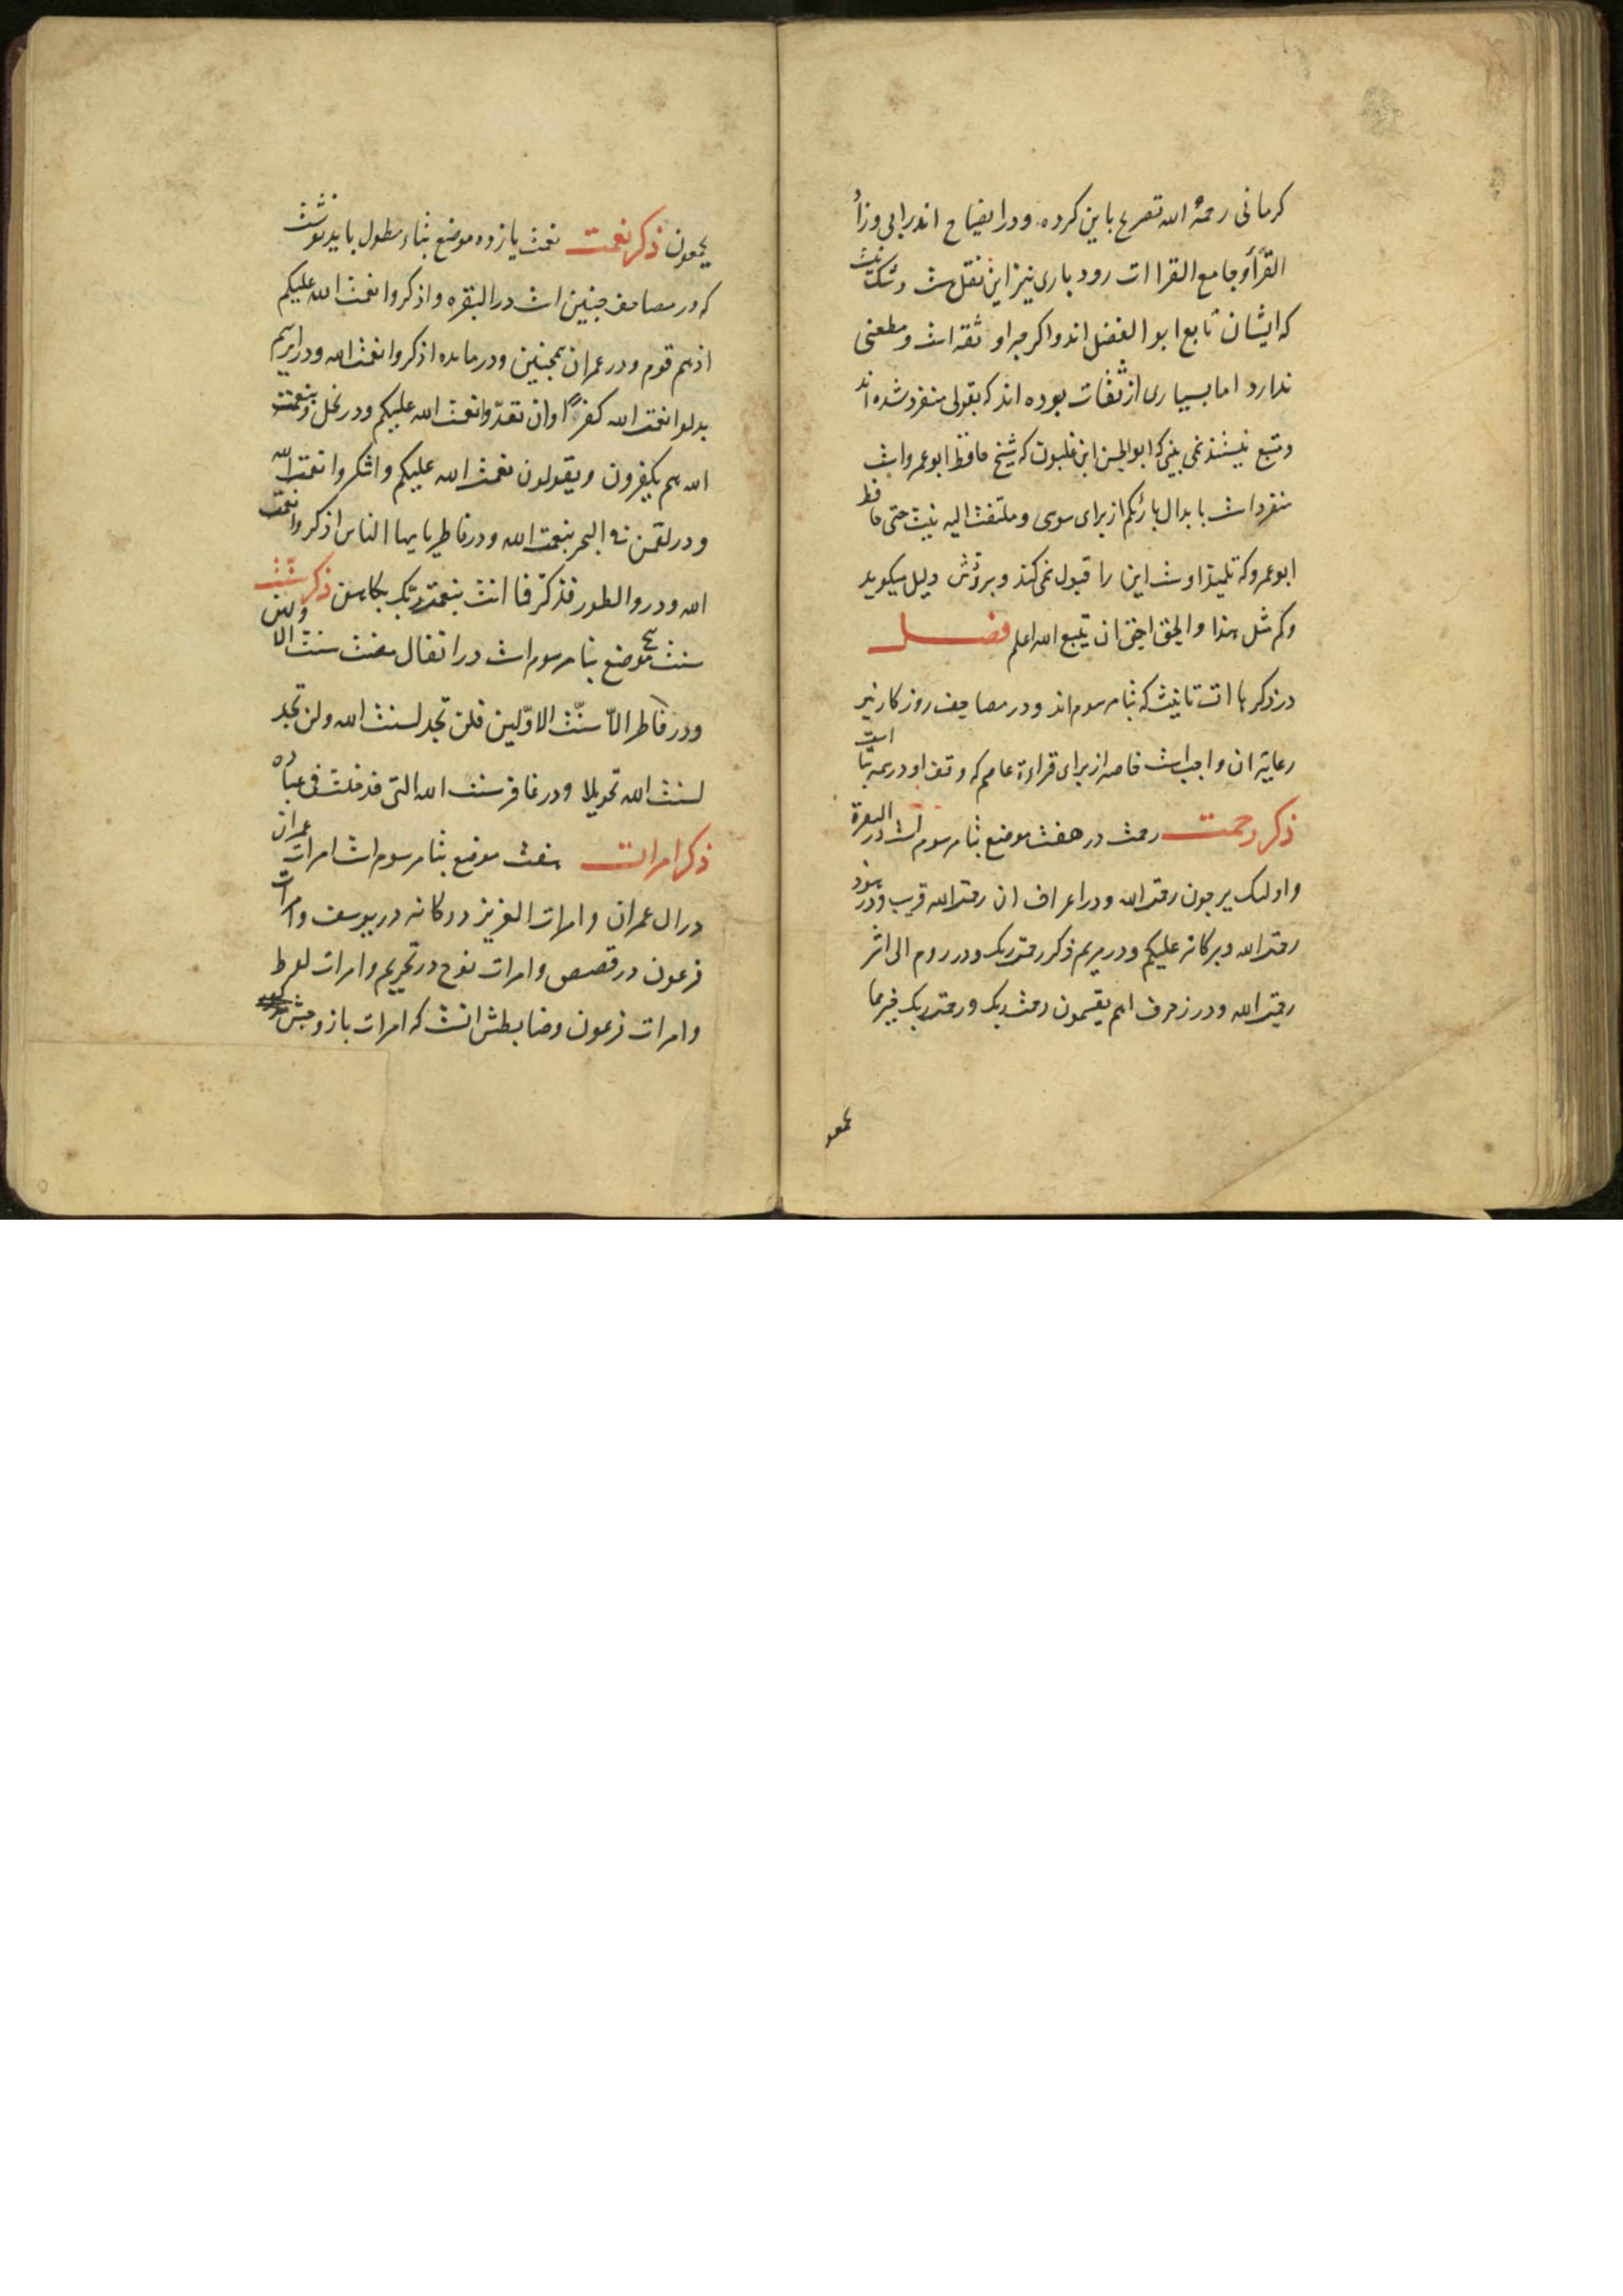 کرمانی رحمه الله تصریح باین کرده و در ایضاح اندرابی وزا
القرّأ و جامع القراات رودباری نیز این نقل هست و شک نیست
که ایشان تابع ابو الفضل اند و اکرچه او ثقه است و مطعنی
ندارد اما بسیاری از ثقات بوده اند که بقولی منفرد شده اند
و متبع نیستند نمی بینی که ابو الحسن ابن غلبون که شیخ حافظ ابو عمرو است
منفرد است بابدال بارئکم از برای سوسی و ملتفت الیه نیست حتی حافظ
ابو عمرو که تلمیذ اوست این را قبول نمی کند و بر ردّش دلیل میکوید
وکم مثل هذا والحق احق ان یتبع الله اعلم فصل
در ذکر هاات تانیث که بتا مرسوم اند و در مصاحف روزکار نیز
رعایة ان واجب است خاصه از برای قراءة عاصم که وقف او در همه بتا است
ذکر رحمت رحمت در هفت موضع بتا مرسوم است در البقرة
و اولئک یرجون رحمت الله و در اعراف ان رحمت الله قریب و در هود
رحمت الله و برکاته علیکم و در مریم ذکر رحمت ربک و در روم الی اثر
رحمت الله و در زخرف اهم یقسمون رحمت ربک و رحمت ربک خیر مما
یجمعو
یجمعون ذکر نعمت نعمت یازده موضع بتاء مطول باید نوشت
که در مصاحف چنین است در البقره و اذکروا نعمت الله علیکم
اذ هم قوم و در عمران همچنین و در مایده اذکروا نعمت الله و در ابرهیم
بدلوا نعمت الله کفرًا و ان تعدّوا نعمت الله علیکم و در نحل و بنعمت
الله هم یکفرون و یقولون نعمت الله علیکم و اشکروا نعمت الله
و در لقمن فی البحر بنعمت الله و در فاطر یایها الناس اذکروا نعمت
الله و در والطور فذکّر فما انت بنعمت ربّک بکاهن ذکر سنّت
سنت پنج موضع بتا مرسوم است در انفال مضت سنت الا ولین
و در فاطر الاّ سنّت الاوّلین فلن تجد لسنت الله و لن تجد
لسنت الله تحویلا و در غافر سنت الله التی قد خلت فی عباده
ذکر امرات هفت موضع بتا مرسوم است امرات عمران
در ال عمران و امرات العزیز دوکانه در یوسف و امرات
فرعون در قصص و امرات نوح در تحریم و امرات لوط
و امرات فرعون و ضابطش انست که امرات با زوجش